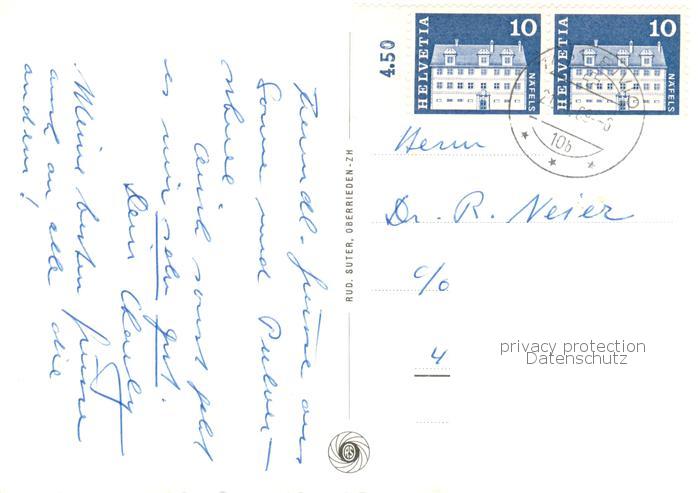 Freundl. Grüsse aus
Sonne und Pulver-
schnee.
Auch sonst geht
es mir sehr gut.
Dein Charly
Meine besten Grüsse
auch an alle die
andern!
RUD. SUTER, OBERRIEDEN-ZH
4.50
HELVETIA 10 NÄFELS
HELVETIA 10 NÄFELS
10b
Herrn
Dr. R. Neier
c/o
4
privacy protection
Datenschutz